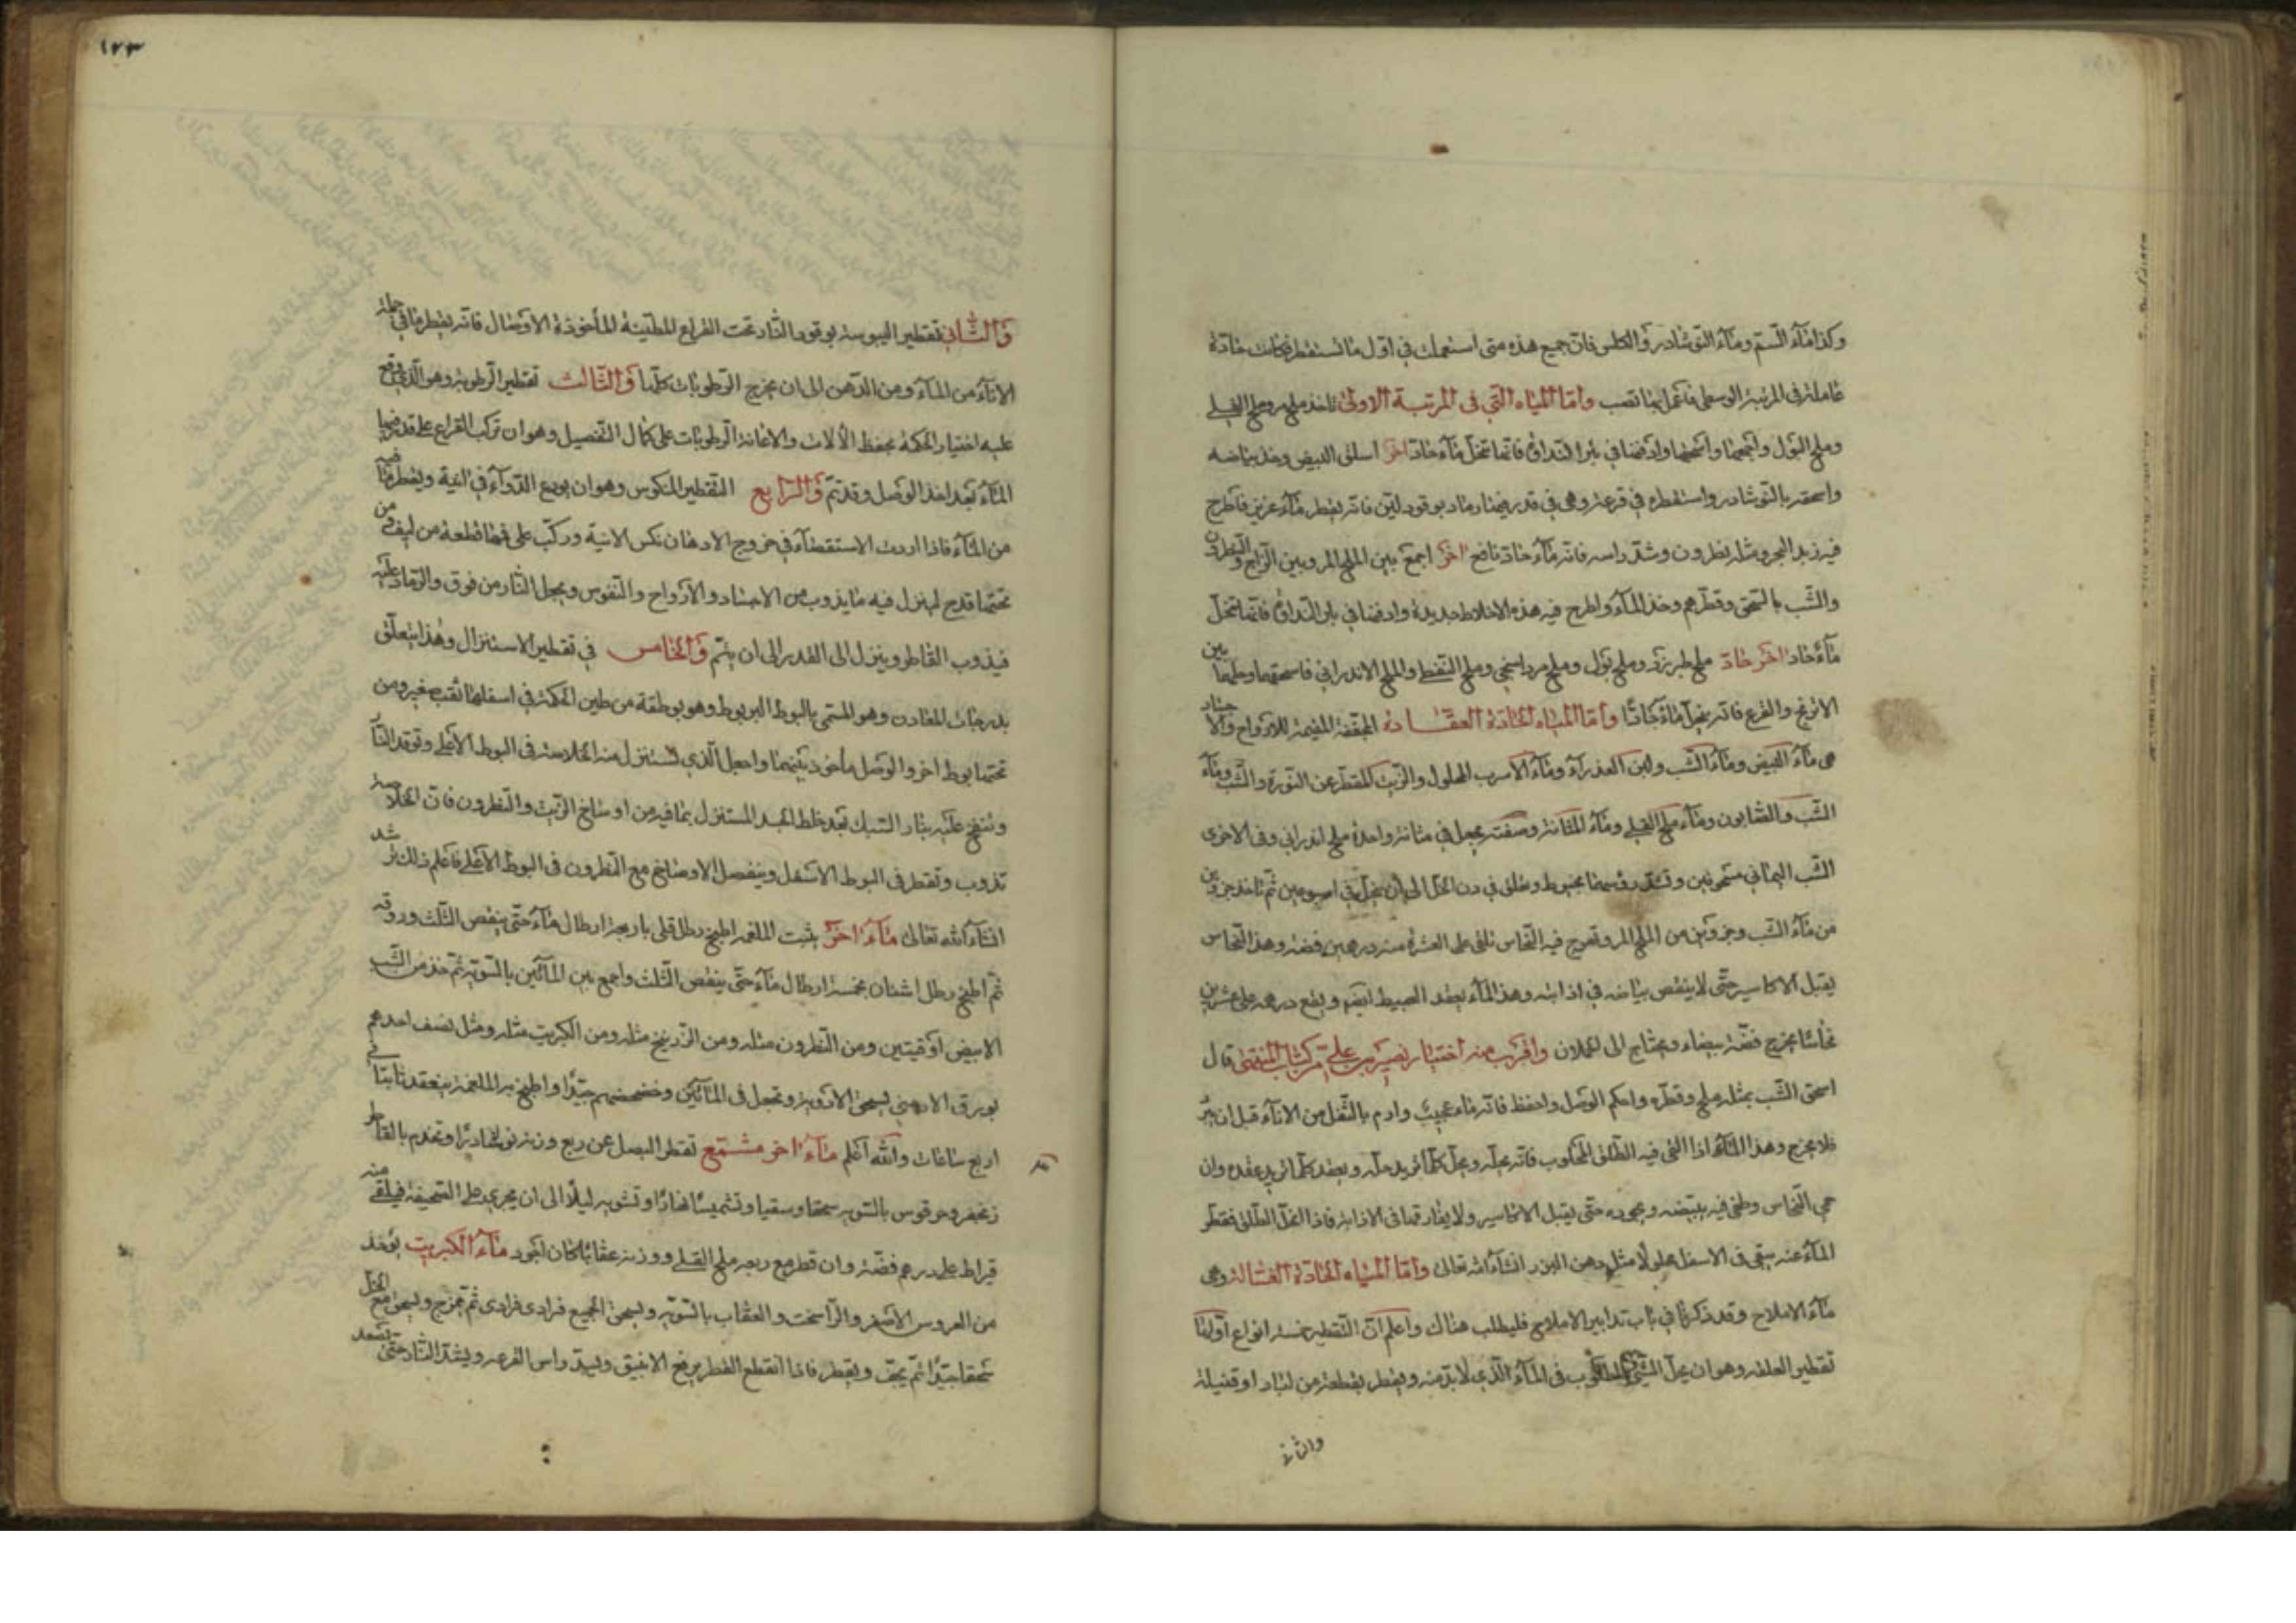 وكذا ماء السم وماء النوشادر والكلس فان جميع هذه متى استعملت في اول ما تستقطر فكانت حادة
عاملة في المرتبة الوسطى فاعمل بها تصب واما المياه التي فى المرتبة الاولى تاخذ ملح مر وملح القلي
وملح البول واجمعها واسحقها وادفنها في بئر النداوة فانها تنحل ماء حاد اخر اسلق البيض وخذ بياضه
واسحقه بالنوشادر واستقطره في قرعة وهى في قدر فيها رماد بوقود لين فانه يقطر ماء عزيز فاطرح
فيه زبد البحر ومثله نطرون وشد راسه فانه ماء حاد نافع اخر اجمع بين الملح المر وبين الزاج والنطرون
والشب بالسحق وقطرهم وخذ الماء واطرح فيه هذه الاخلاط جديدة وادفنها في بئر النداوة فانها تنحل
ماء حاد اخر حاد ملح طبرزد وملح بول وملح مرداسنج وملح النفط والملح الاندراني فاسحقها وحلها بين
الاترج والقرع فانه ينحل ماء حادا واما المياه الحادة العقادة المجففة المقيمة للارواح والاجساد
هى ماء البيض وماء الشب ولبن العذراء وماء الاسرب المحلول والزيت المقطر عن النورة والشب وماء
الشب والصابون وماء ملح القلي وماء المثانة وصفته يجعل في مثانة واحدة ملح اندراني وفى الاخرى
الشب اليماني مسحوقين وتشد رؤسها بخيوط وتعلق في دن الخل الى ان ينحل في اسبوعين ثم تاخذ جزوين
من ماء الشب وجزوين من الملح المر وتمزج فيه النحاس تلقى على العشرة منه درهمين فضة وهذا النحاس
يقبل الاكاسير حتى لا ينقص بياضه في اذابته وهذا الماء يعقد العبيط ايضا ويقع درهمه على عشرين
نحاسا يخرج فضة بيضاء ويحتاج الى الحملان واقرب منه اختيار نصير بن علي من كتاب المنتقى قال
اسحق الشب بمثله ملح وقطره واحكم الوصل واحفظ فانه ماء عجيب وادم بالثفل من الاناء قبل ان يبرد
فلا يخرج وهذا الماء اذا القي فيه الطلق المحلوب فانه يحله ويحل كلما تريد حله ويعقد كلما تريد عقده وان
حمي النحاس وطفي فيه يبيضه ويجوده حتى يقبل الاكاسير ولا يفارقها في الاذابة فاذا انحل الطلق فقطر
الماء عنه يبقى فى الاسفل محلولا مثل دهن البزر انشاء الله تعالى واما المياه الحادة الغسالة وهى
ماء الاملاح وقد ذكرنا في باب تدابير الاملاح فليطلب هناك واعلم ان التقطير خمسة انواع اولها
تقطير العلقة وهو ان يحل الشئ المطلوب فى الماء الذي لا بد منه ويقطر بقطعة من لباد او فتيلة
والثاني
١٢٣
والثاني تقطير اليبوسة بوقود النار تحت القراع المطينة المأخوذة الاوصال فانه يقطر ما في جملة
الاناء من الماء ومن الدهن الى ان يخرج الرطوبات كلها والثالث تقطير الرطوبة وهو الذي وقع
عليه اختيار الحكمة بحفظ الآلات والاعانة الرطوبات على كمال التفصيل وهو ان تركب القراع على قدر فيها
الماء بعد اخذ الوصل وقد تم والرابع التقطير المنكوس وهو ان يودع الدواء في انية ويقطر ما فيه
من الماء فاذا اردت الاستقصاء في خروج الادهان نكس الانية وركب على فمها قطعة من ليف ومن
تحتها قدح لينزل فيه ما يذوب من الاجساد والارواح والنفوس ويجعل النار من فوق والرماد عليه
فيذوب القاطر وينزل الى القدر الى ان يتم والخامس في تقطير الاستنزال وهذا يتعلق
بدرجات المعادن وهو المسمى بالبوط البربوط وهو بوطقة من طين الحكمة في اسفلها ثقب صغير ومن
تحتها بوط اخر والوصل مأخوذ بينهما واجعل الذي تستنزل منه الخلاصة فى البوط الاعلى وتوقد النار
وتنفخ عليه بنار السبك بعد خلط الجسد المستنزل بما فيه من اوساخ الزيت والنطرون فان الخلاصة
تذوب وتقطر فى البوط الاسفل وينفصل الاوساخ مع النطرون فى البوط الاعلى فاعلم ذلك ترشد
انشاء الله تعالى ماء اخر يثبت الملغمة اطبخ رطل قلي باربعة ارطال ماء حتى ينقص الثلث وروقه
ثم اطبخ رطل اشنان بخمسة ارطال ماء حتى ينقص الثلث واجمع بين المائين بالسوية ثم خذ من الشب
الابيض اوقيتين ومن النطرون مثله ومن الزرنيخ مثله ومن الكبريت مثله ومثل نصف احدهم
بورق الارمني يسحق الادوية وتجعل فى المائين وخضخضهم جيدا واطبخ به الملغمة ينعقد ثابتا في
اربع ساعات والله اعلم ماء اخر مشمع تقطر البصل عن ربع وزنه نوشادرا وتخدم بالقاطر
زنجفر ومرقوس بالسوية سحقا وسقيا وتشميسا نهارا وتشويه ليلا الى ان يجري على الصحيفة فيلقى منه
قيراط على درهم فضة وان قطر مع ربعه ملح القلي ووزنه عقابا كان اجود ماء الكبريت يؤخذ
من العروس الاصفر والراسخت والعقاب بالسوية ويسحق الجميع فرادى فرادى ثم تمزج ويسحق مع الخل
سحقا جيدا ثم يجفف ويقطر فاذا انقطع القطر يرفع الانبيق ويسد راس القرعة ويشد النار حتى تصعد